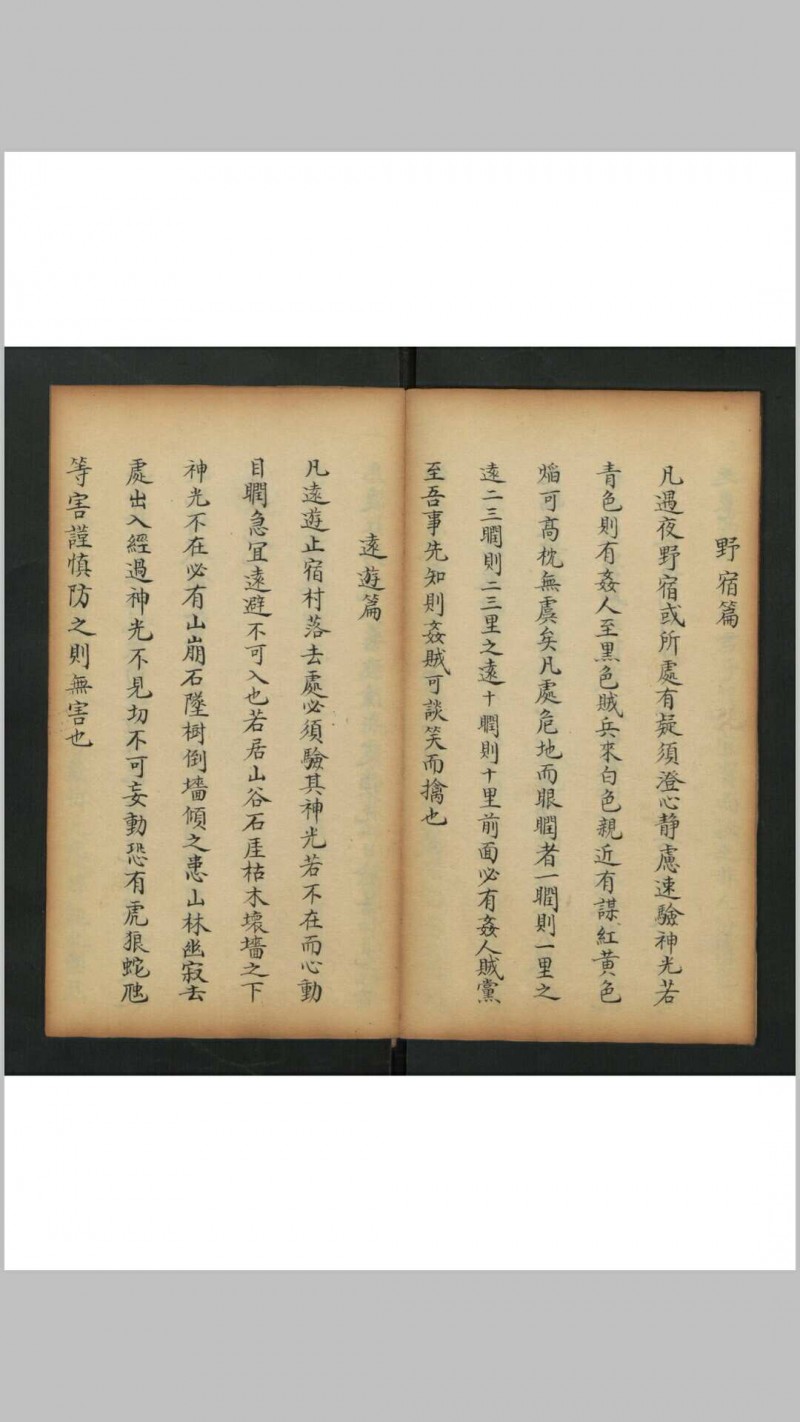 野宿篇
凡遇夜野宿或所處有疑須澄心静慮速驗神光若
青色則有姦人至黑色賊兵來白色親近有謀紅黄色
焰可高枕無虞矣凡處危地而眼瞤者一瞤則一里之
遠二三瞤則二三里之遠十瞤則十里前面必有姦人賊黨
至吾事先知則姦賊可談笑而擒也
遠遊篇
凡遠遊止宿村落去處必須驗其神光若不在而心動
目瞤急宜遠避不可入也若居山谷石崖枯木壞墻之下
神光不在必有山崩石墜樹倒墻傾之患山林幽寂去
處出入經過神光不見切不可妄動恐有虎狼蛇虺
等害謹慎防之則無害也